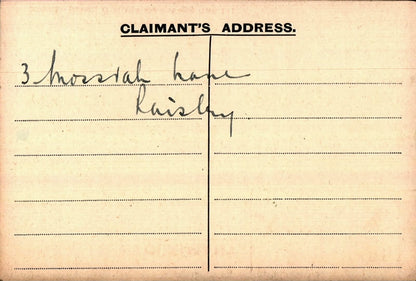 CLAIMANT'S ADDRESS.
3 Mossvale Lane
Paisley